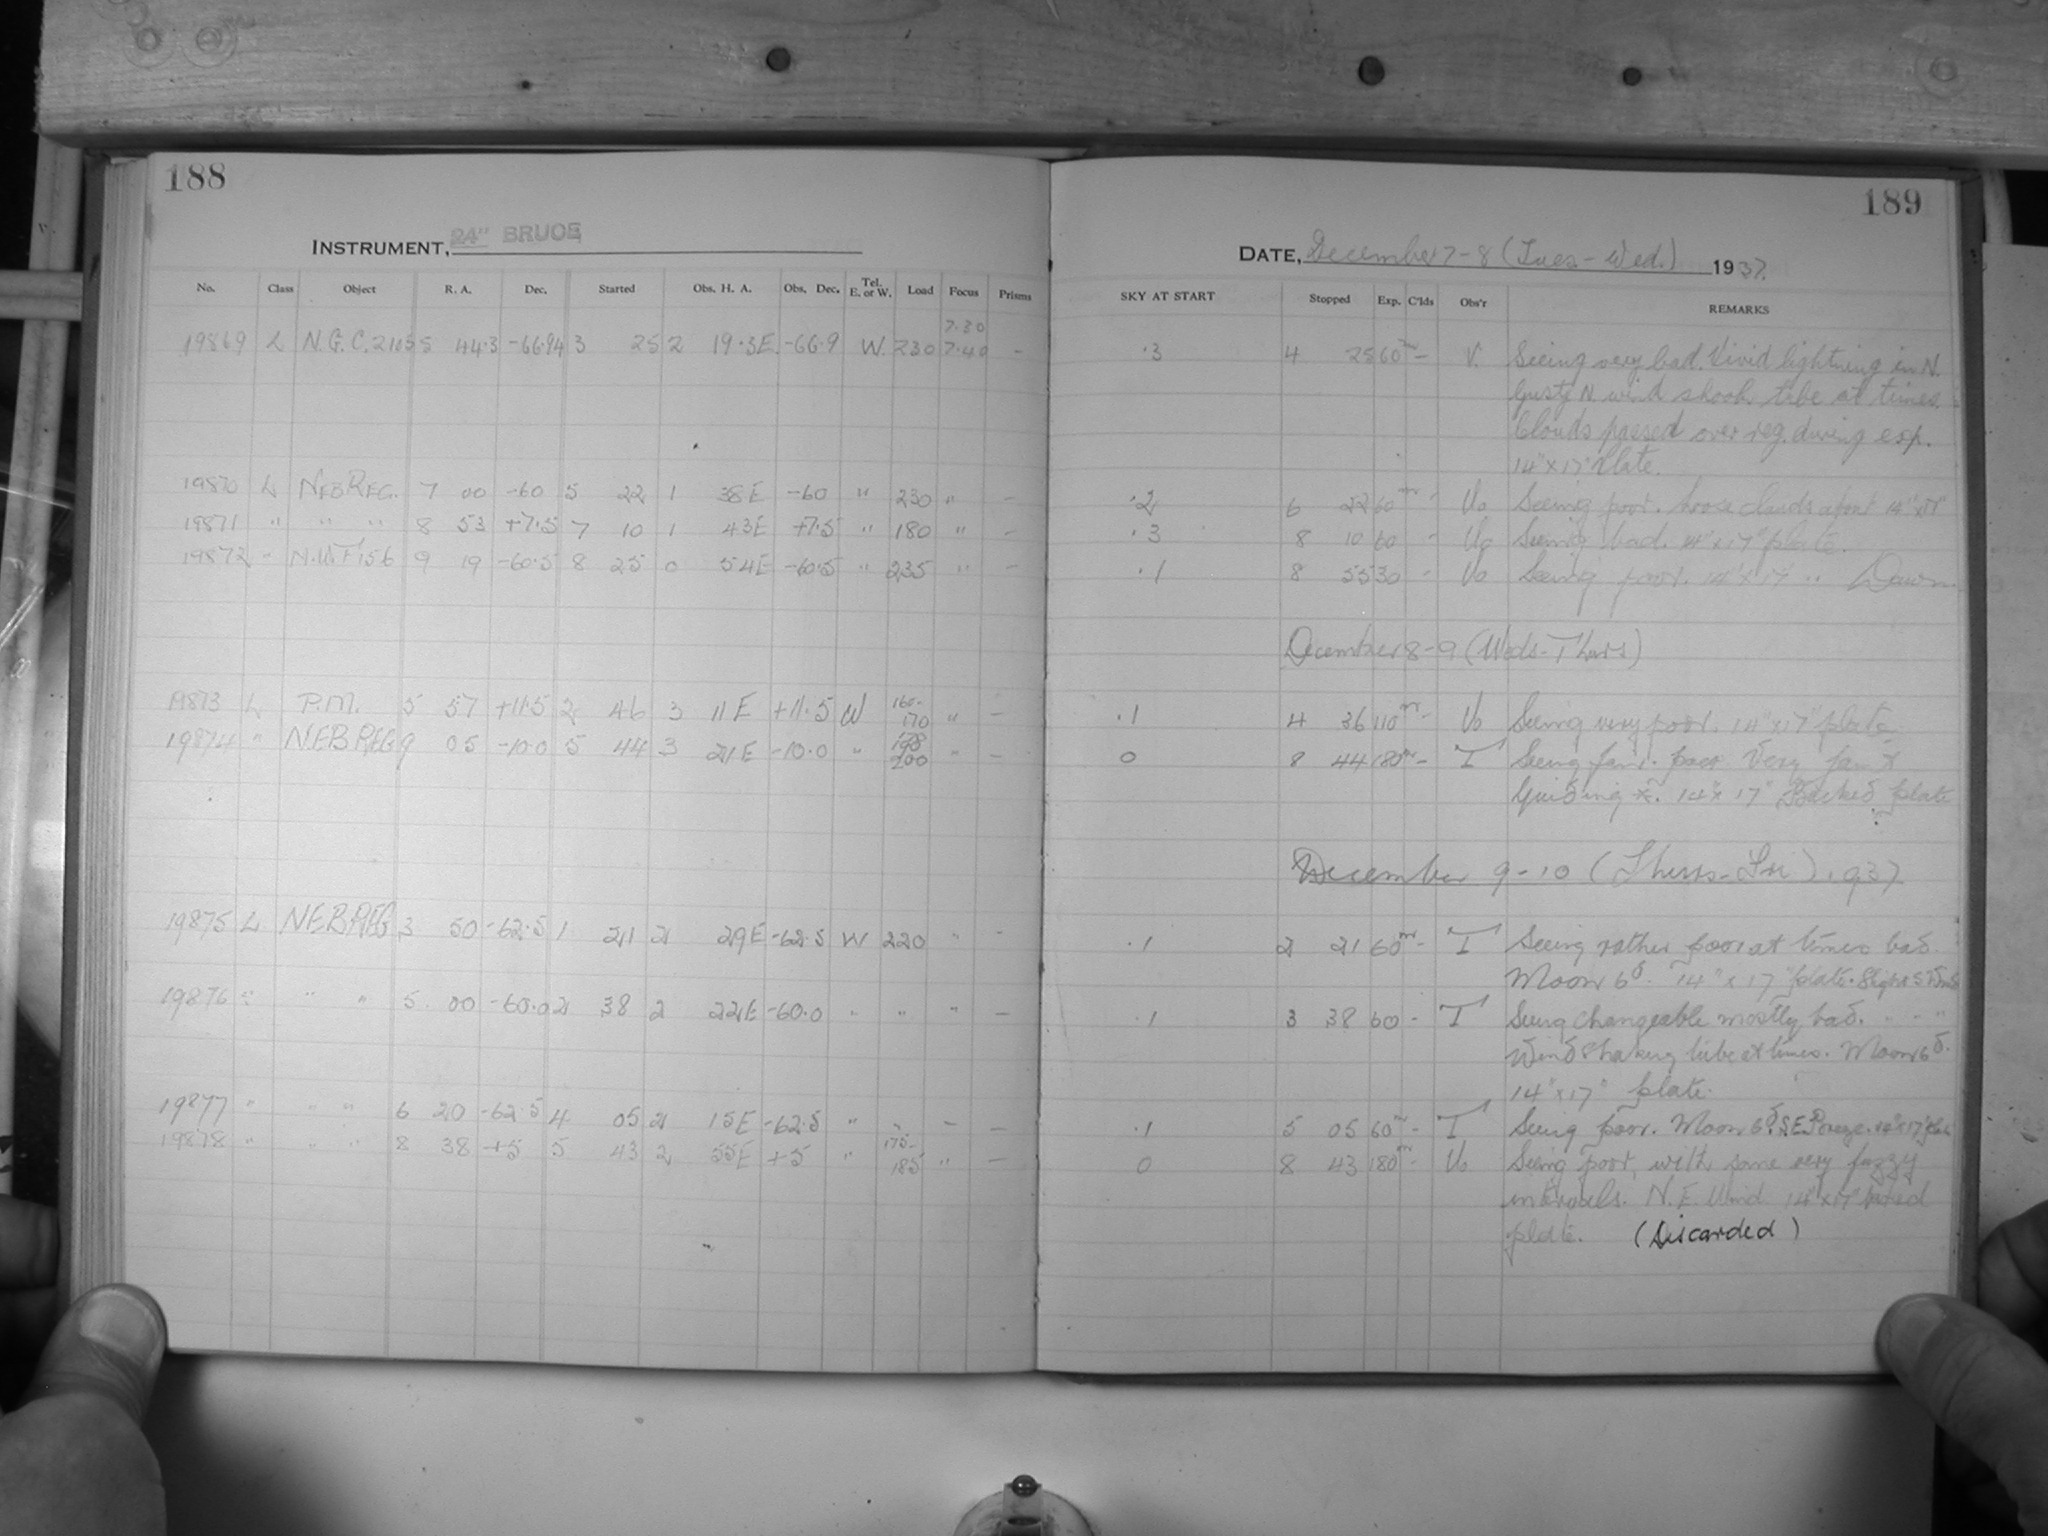 188
INSTRUMENT, 24" BRUCE
No. Class Object R. A. Dec. Started Obs. H. A. Obs. Dec. Tel. E. or W. Load Focus Prisms
7.30
19869 L N.G.C. 2105 5 44.3 -66.94 3 25 2 19.3E -66.9 W. 230 7.40 -
19870 L NEBREG. 7 00 -60 5 22 1 38E -60 " 230 " -
19871 " " " 8 53 +7.5 7 10 1 43E +7.5 " 180 " -
19872 - 156 9 19 -60.5 8 25 0 54E -60.5 " 235 " -
19873 L P.M. 5 57 +11.5 2 46 3 11E +11.5 W 160-170 " -
19874 " NEBREG 9 05 -10.0 5 44 3 21E -10.0 " 200 " -
19875 L NEBREG 3 50 -62.5 1 21 2 29E -62.5 W 220 " -
19876 " " " 5 00 -60.0 2 38 2 22E -60.0 " " " -
19877 " " " 6 20 -62.5 4 05 2 15E -62.5 " " - -
19878 " " " 8 38 +5 5 43 2 55E +5 " 175-185 " -
189
DATE, December 7-8 (Tues-Wed.) 1937.
SKY AT START Stopped Exp. C'lds Obs'r REMARKS
.3 4 25 60m - V. Seeing very bad. Vivid lightning in N.
Gusty N wind shook tube at times.
Clouds passed over reg. during exp.
14"x17" Plate.
.2 6 22 60m - Vo Seeing poor. loose clouds about 14"x17"
.3 8 10 60 - Vo Seeing bad. 14"x17" plate.
.1 8 55 30 - Vo Seeing poor. 14"x17" " Dawn
December 8-9 (Weds-Thurs)
.1 4 36 110m - Vo Seeing very poor. 14"x17" plate
0 8 44 180m - T Seeing fair. poor Very
Guiding *. 14"x17" Backed plate
December 9-10 (Thurs-Fri) 1937
.1 2 21 60m - T Seeing rather poor at times bad.
Moon 6d. 14"x17" plate. Slight S Wind
.1 3 38 60 - T Seeing changeable mostly bad. - - "
Wind shaking tube at times. Moon 6d.
14"x17" plate.
.1 5 05 60m - T Seeing poor. Moon 6d. S.E. Breeze. 14"x17" plate
0 8 43 180m - Vo Seeing poor, with some very fuzzy
intervals. N.E. Wind. 14"x17" backed
plate. (Discarded)